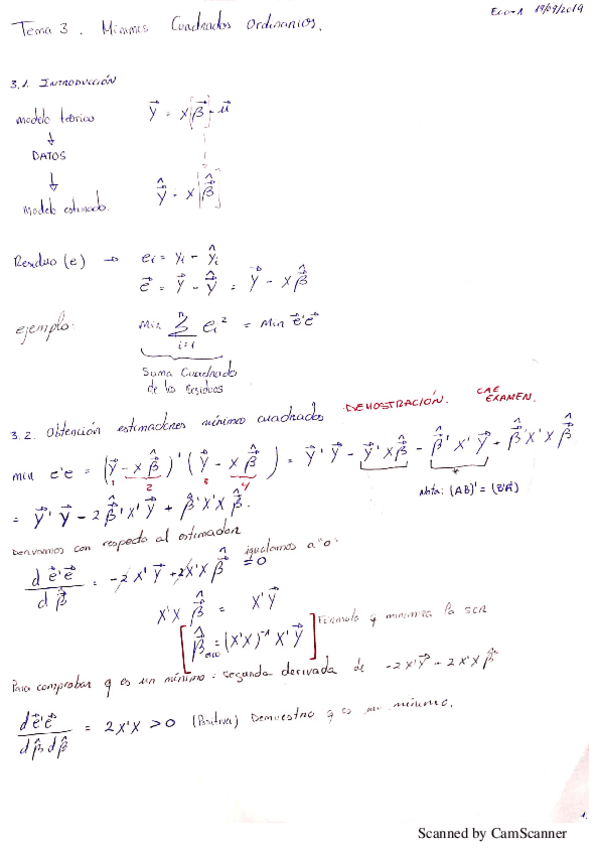 Eco-1 19/09/2019
Tema 3. Mínimos Cuadrados Ordinarios.
3.1. INTRODUCCIÓN
modelo teórico Y⃗ = X[β⃗]-u⃗
↓
DATOS
↓
modelo estimado. Ŷ = X[β̂]
Residuo (e) → eᵢ = yᵢ - ŷᵢ
e⃗ = Y⃗ - Ŷ = Y⃗ - Xβ̂
ejemplo: Min Σⁿᵢ₌₁ eᵢ² = Min e⃗'e⃗
Suma Cuadrado
de los Residuos
3.2. Obtención estimadores mínimo cuadrados DEMOSTRACIÓN. CAE EXAMEN.
min e'e = (Y⃗ - Xβ̂)' (Y⃗ - Xβ̂) = Y⃗'Y⃗ - Y⃗'Xβ̂ - β̂'X'Y⃗ + β̂'X'Xβ̂
1 2 3 4
Nota: (AB)' = (B'A')
= Y⃗'Y⃗ - 2β̂'X'Y⃗ + β̂'X'Xβ̂.
Derivamos con respecto al estimador igualamos a "0":
d e⃗'e⃗ / d β̂ = -2X'Y⃗ + 2X'Xβ̂ = 0
X'Xβ̂ = X'Y⃗
[β̂ₘcₒ = (X'X)⁻¹ X'Y⃗] Fórmula q minimiza la SCR
Para comprobar q es un mínimo = segunda derivada de -2X'Y⃗ - 2X'Xβ̂
d e⃗'e⃗ / dβ̂ dβ̂ = 2X'X > 0 (Positiva) Demuestra q es un mínimo.
1.
Scanned by CamScanner